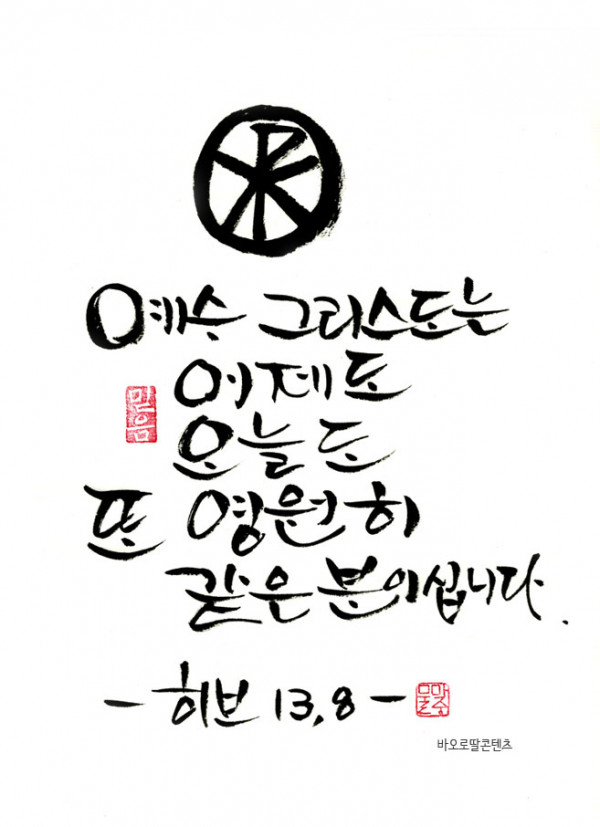 예수 그리스도는
어제도
믿음
오늘도
또 영원히
같은 분이십니다.
- 히브 13,8 -
바오로딸콘텐츠